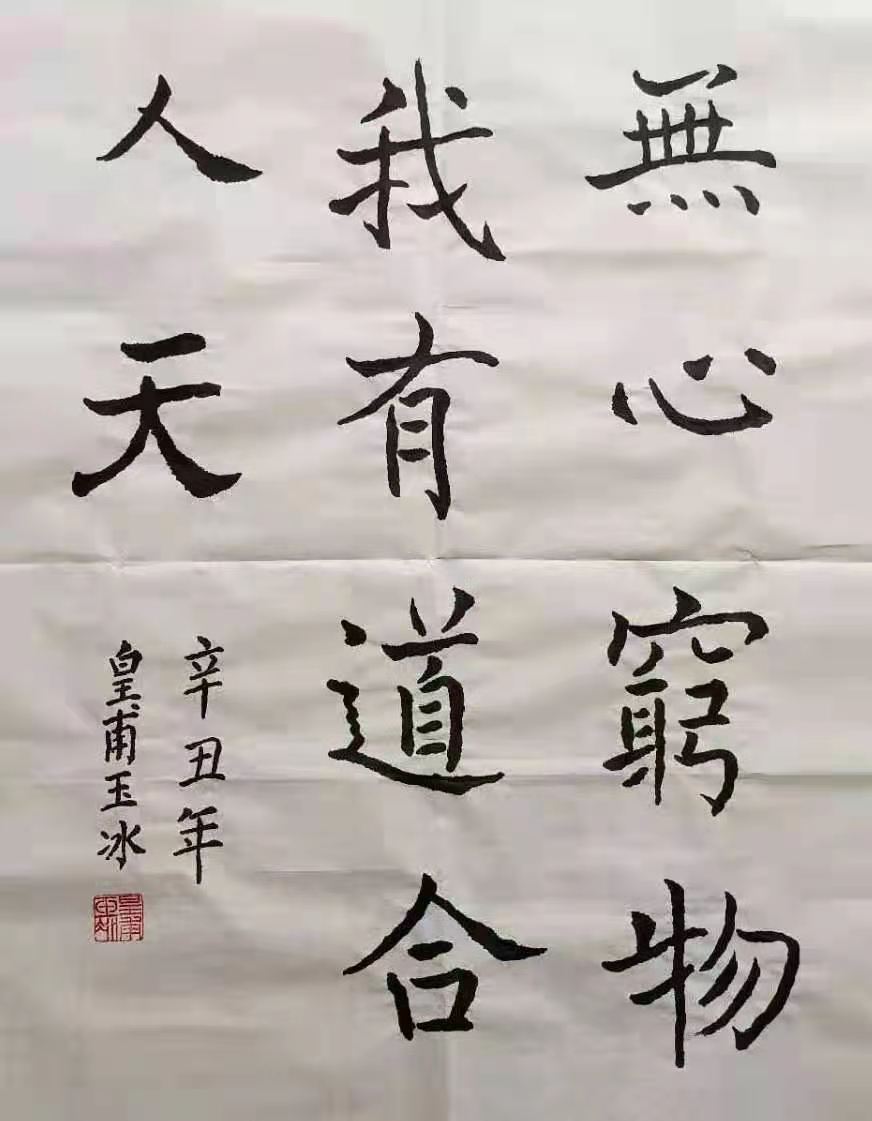 無心窮物
我有道合
人天
辛丑年
皇甫玉冰